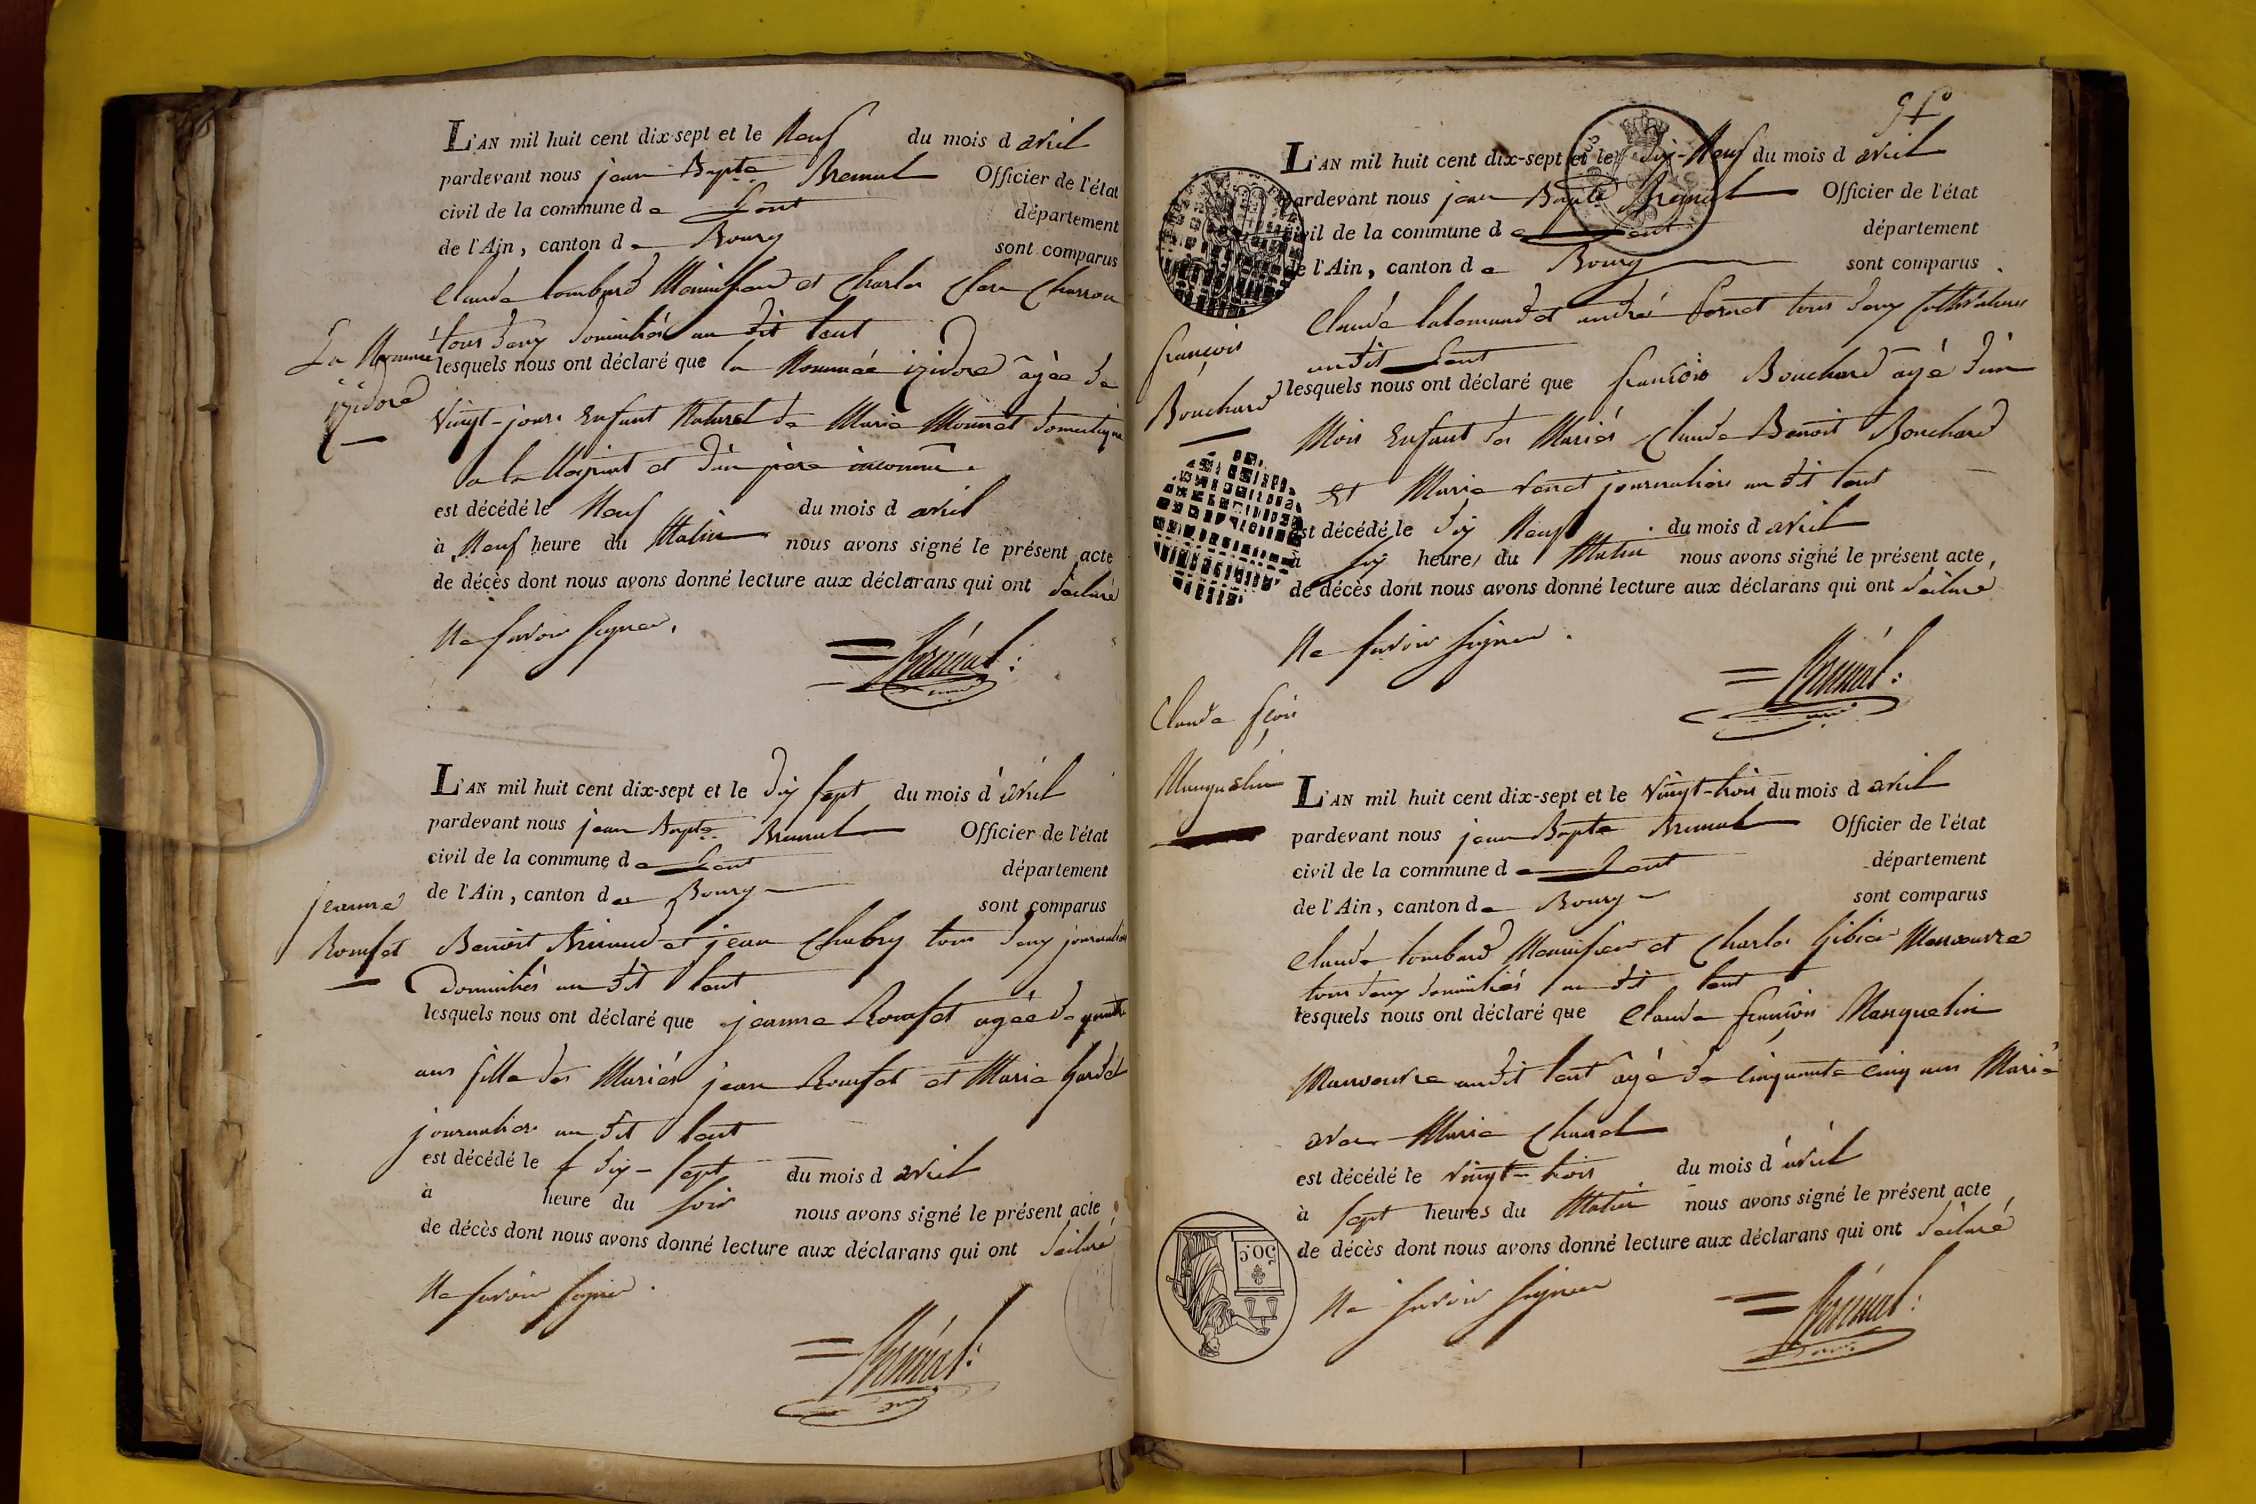 L'AN mil huit cent dix-sept et le Neuf du mois d avril
pardevant nous jean Bapte Bremal Officier de l'état
civil de la commune de Lent département
de l'Ain, canton de Bourg sont comparus
Claude Lombard Menuisier et Charles Charron
tous deux domiciliés au dit Lent
La Nommée
izidore
lesquels nous ont déclaré que la Nommée izidore âgée de
Vingt-jours Enfant Naturel de Marie Monnet domestique
a la et d'un père inconnu.
est décédé le Neuf du mois d avril
à Neuf heure du Matin nous avons signé le présent acte
de décès dont nous avons donné lecture aux déclarans qui ont déclaré
Ne savoir signer.
Brémal
L'AN mil huit cent dix-sept et le dix sept du mois d'avril
pardevant nous jean Bapte Bremal Officier de l'état
civil de la commune de Lent département
de l'Ain, canton de Bourg sont comparus
jeanne
Rousset
Benoit et jean Chabry tous deux journaliers
Domiciliés au dit Lent
lesquels nous ont déclaré que jeanne Rousset agée de quatre
ans fille des Mariés jean Rousset et Marie Gardet
journaliers au dit Lent
est décédé le dix-sept du mois d avril
à heure du soir nous avons signé le présent acte
de décès dont nous avons donné lecture aux déclarans qui ont déclaré
Ne savoir signer.
Brémal
L'AN mil huit cent dix-sept et le dix-Neuf du mois d avril
pardevant nous jean Bapte Bremal Officier de l'état
civil de la commune de Lent département
de l'Ain, canton de Bourg sont comparus
Claude Lalemand et andré fornet tous deux Cultivateurs
audit Lent
françois
Bouchard
lesquels nous ont déclaré que françois Bouchard âgé d'un
Mois Enfant des Mariés Claude Benoit Bouchard
Et Marie journaliers au dit Lent
est décédé le dix Neuf du mois d avril
à six heures du Matin nous avons signé le présent acte,
de décès dont nous avons donné lecture aux déclarans qui ont déclaré
Ne savoir signer.
Brémal
Claude fçois
Manguelin
L'AN mil huit cent dix-sept et le Vingt-trois du mois d avril
pardevant nous jean Bapte Bremal Officier de l'état
civil de la commune de Lent département
de l'Ain, canton de Bourg sont comparus
Claude Lombard Menuisier et Charles Gibier Manoeuvre
tous deux domiciliés au dit Lent
lesquels nous ont déclaré que Claude françois Manguelin
Manoeuvre audit Lent âgé de cinquante cinq ans Marié
avec Marie
est décédé le vingt-trois du mois d'avril
à sept heures du Matin nous avons signé le présent acte
de décès dont nous avons donné lecture aux déclarans qui ont déclaré
50.C
Ne savoir signer
Brémal